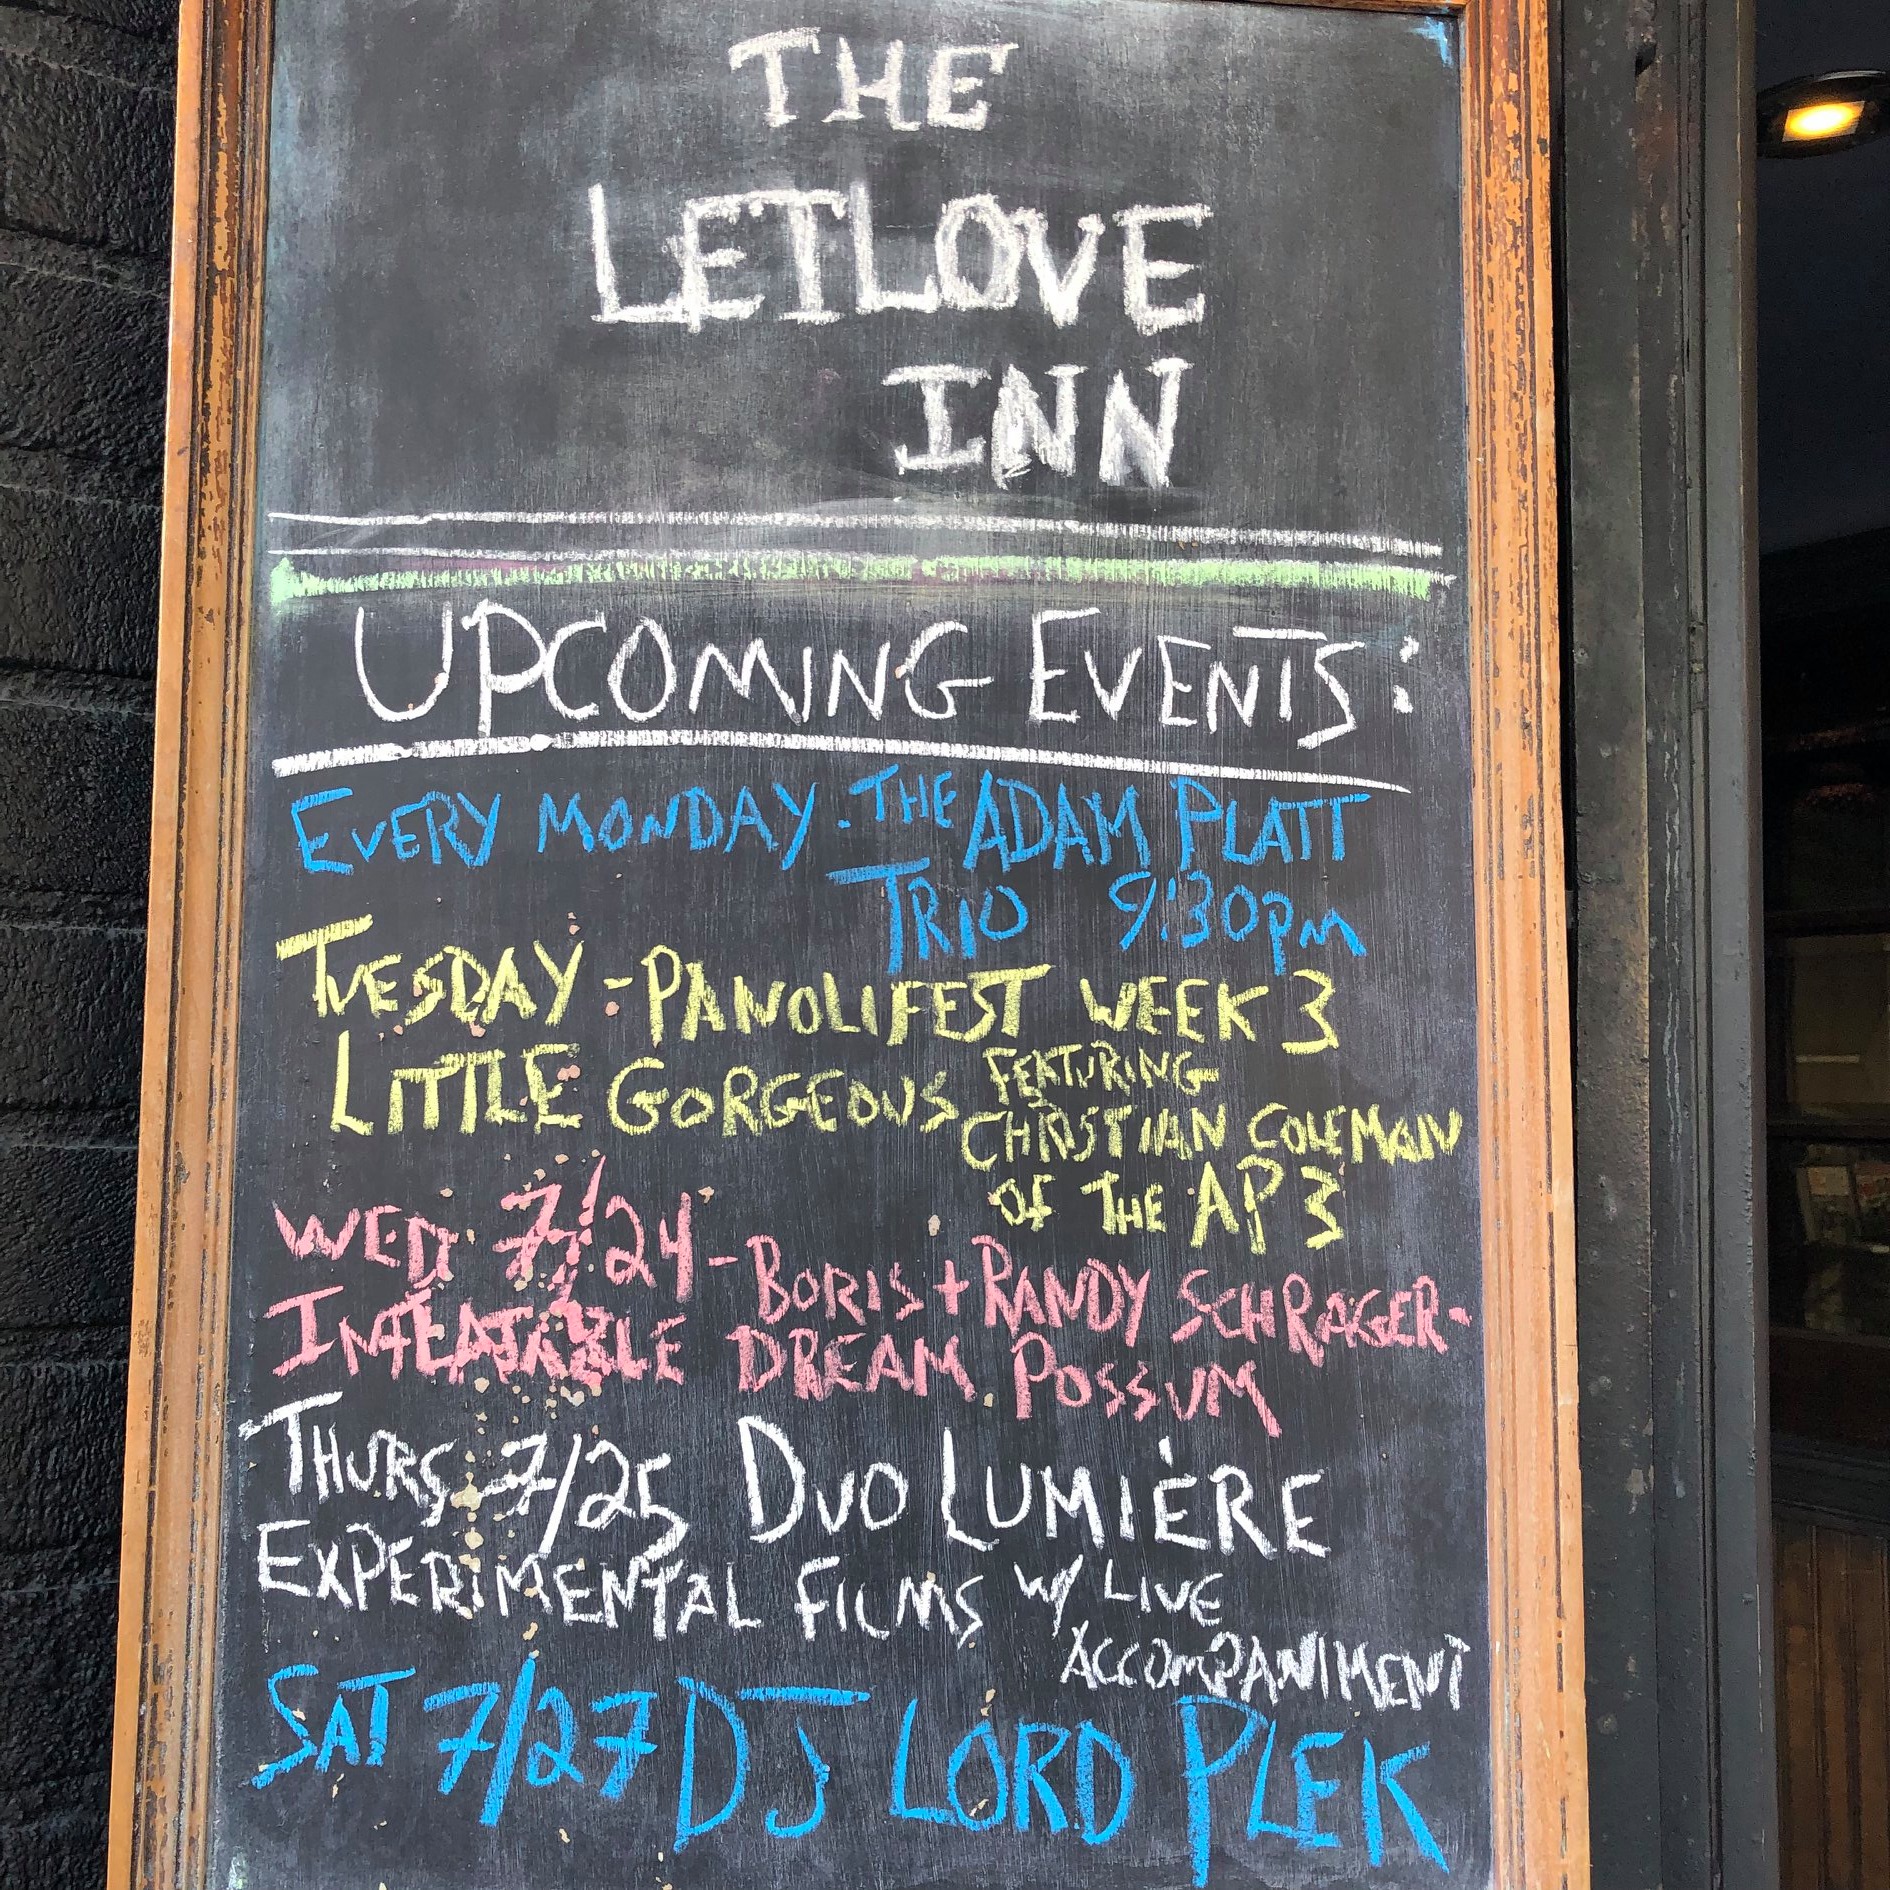 THE
LETLOVE
INN
UPCOMING EVENTS:
EVERY MONDAY. THE ADAM PLATT
TRIO 9:30PM
TUESDAY - PANOLIFEST WEEK 3
LITTLE GORGEOUS FEATURING
CHRISTIAN COLEMAN
OF THE AP3
WED 7/24 - BORIS + RANDY SCHRAGER-
INFLATABLE DREAM POSSUM
THURS 7/25 DUO LUMIÈRE
EXPERIMENTAL FILMS W/ LIVE
ACCOMPANIMENT
SAT 7/27 DJ LORD PLEK